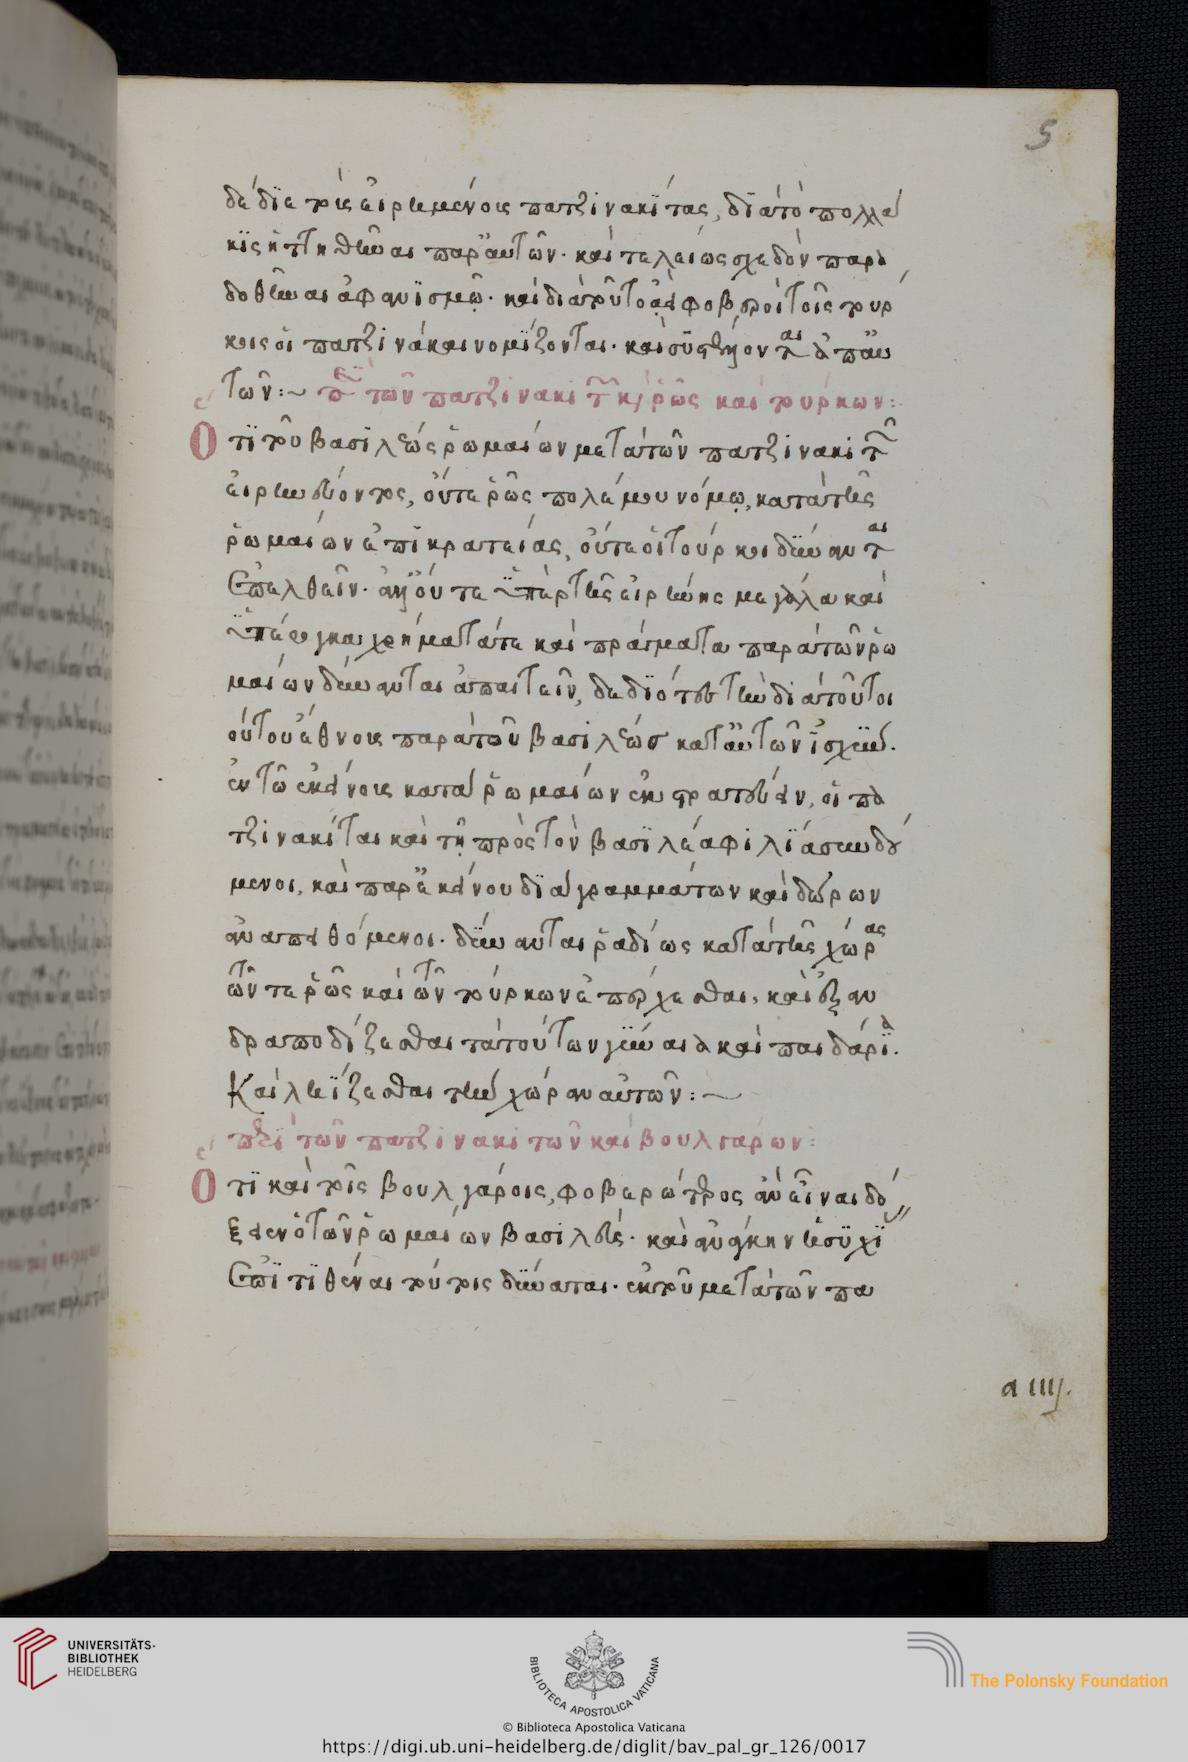 5
δέδιε τοῖς εἰρημένοις πατζινακίτας, διὰ τὸ πολλά
κις ἡττηθῆναι παρ' αὐτῶν. καὶ τελείως σχεδὸν παρα
δοθῆναι ἀφανισμῷ. καὶ διὰ τοῦτο ἀεὶ φοβεροὶ τοῖς τούρ
κοις οἱ πατζινάκαι νομίζονται. καὶ συστέλλονται ἀπ' αὐ
τῶν:~ περὶ τῶν πατζινακιτῶν καὶ ῥῶς καὶ τούρκων:
Ὅτι τοῦ βασιλέως ῥωμαίων μετὰ τῶν πατζινακιτῶν
εἰρηνεύοντος, οὔτε ῥῶς πολέμου νόμῳ, κατὰ τῆς
ῥωμαίων ἐπικρατείας, οὔτε οἱ τοῦρκοι δύνανται
ἐπελθεῖν. ἀλλ' οὔτε ὑπὲρ τῆς εἰρήνης μεγάλα καὶ
ὑπέρογκα χρήματά τε καὶ πράγματα παρὰ τῶν ῥω
μαίων δύνανται ἀπαιτεῖν, δεδιότες τὴν διὰ τοῦ τοι
ούτου ἔθνους παρὰ τοῦ βασιλέως κατ' αὐτῶν ἰσχύν.
ἐν τῷ ἐκείνους κατὰ ῥωμαίων ἐκστρατεύειν, οἱ πα
τζινακίται καὶ τῇ πρὸς τὸν βασιλέα φιλίᾳ συνδού
μενοι, καὶ παρ' ἐκείνου διὰ γραμμάτων καὶ δώρων
ἀναπειθόμενοι. δύνανται ῥαδίως κατὰ τῆς χώρας
τῶν τε ῥῶς καὶ τῶν τούρκων ἐπέρχεσθαι, καὶ ἐξαν
δραποδίζεσθαι τὰ τούτων γύναια καὶ παιδάρια.
Καὶ ληΐζεσθαι τὴν χώραν αὐτῶν:~
περὶ τῶν πατζινακιτῶν καὶ βουλγάρων:
Ὅτι καὶ τοῖς βουλγάροις, φοβερώτερος ἂν εἶναι δό
ξειεν ὁ τῶν ῥωμαίων βασιλεύς. καὶ ἀνάγκην ἡσυχί
ἐπιτιθέναι τούτοις δύναται. ἐκ τοῦ μετὰ τῶν πα
a iiij.
UNIVERSITÄTS-
BIBLIOTHEK
HEIDELBERG
BIBLIOTECA APOSTOLICA VATICANA
The Polonsky Foundation
© Biblioteca Apostolica Vaticana
https://digi.ub.uni-heidelberg.de/diglit/bav_pal_gr_126/0017